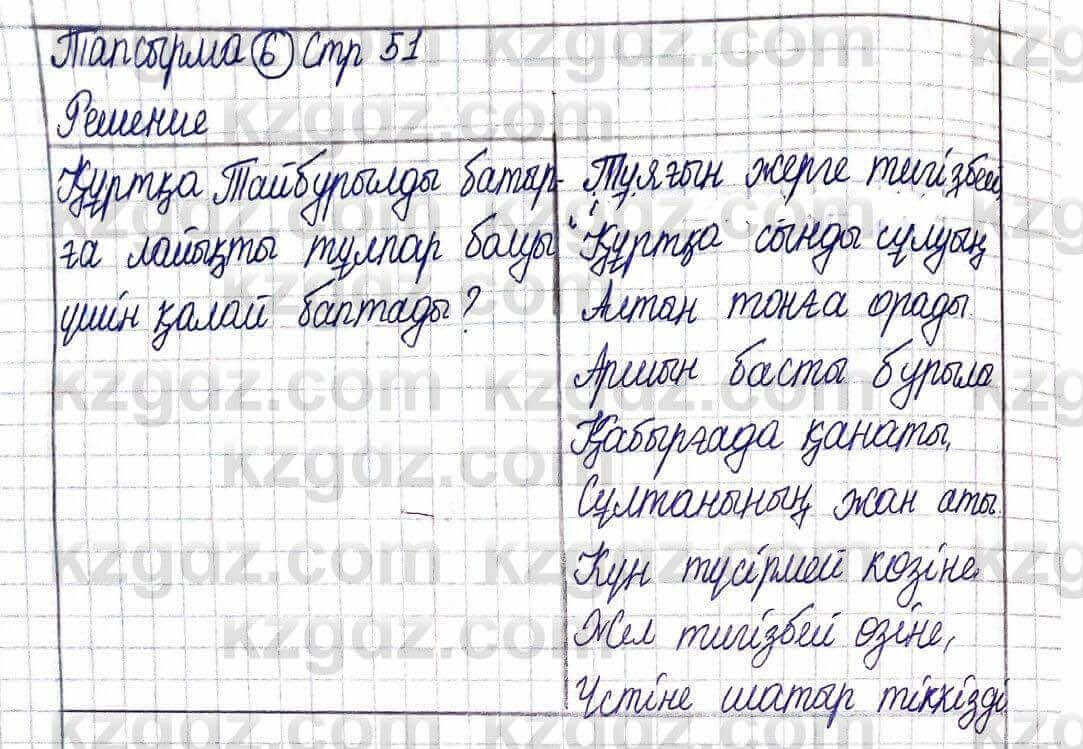 Тапсырма 6 стр 51
Решение
Құртқа Тайбурылды батыр-
ға лайықты тұлпар болуы
үшін қалай баптады?
Тұяғын жерге тигізбей,
"Құртқа сынды сұлуың
Алтан тонға орады.
Аршын басты бурыла
Қабырғада қанаты,
Сұлтанының жан аты.
Күн түсірмей көзіне
Жел тигізбей өзіне,
Үстіне шатыр тіккізді
kzgdz.com